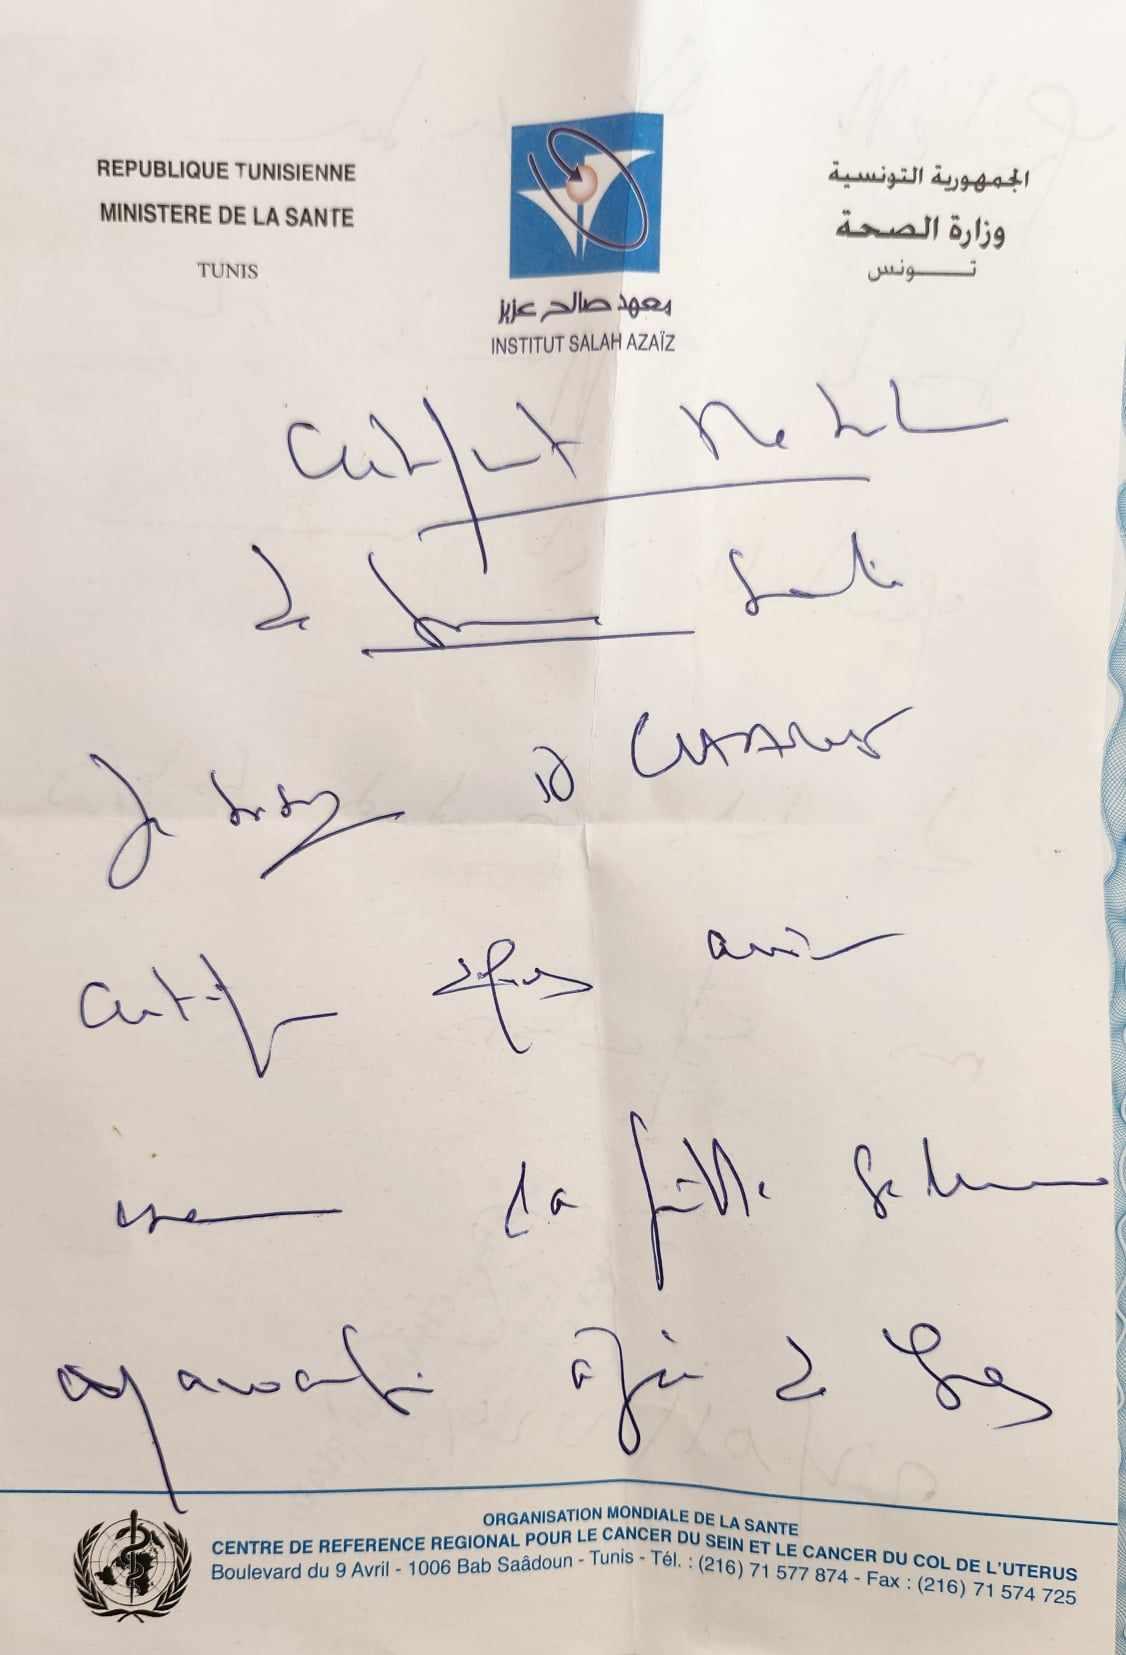 REPUBLIQUE TUNISIENNE
MINISTERE DE LA SANTE
TUNIS
الجمهورية التونسية
وزارة الصحة
تـــونس
معهد صالح عزيز
INSTITUT SALAH AZAÏZ
Certificat Médical
de bonne Santé
Je soussigné Dr
Certifie avoir
examiné la fille
apparemment âgée de
ORGANISATION MONDIALE DE LA SANTE
CENTRE DE REFERENCE REGIONAL POUR LE CANCER DU SEIN ET LE CANCER DU COL DE L'UTERUS
Boulevard du 9 Avril - 1006 Bab Saâdoun - Tunis - Tél. : (216) 71 577 874 - Fax : (216) 71 574 725